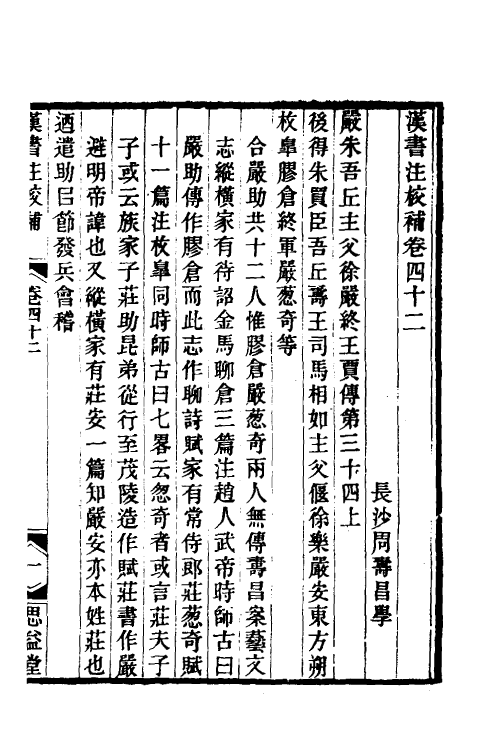 漢書注校補卷四十二
長沙周壽昌學
嚴朱吾丘主父徐嚴終王賈傳第三十四上
後得朱買臣吾丘壽王司馬相如主父偃徐樂嚴安東方朔
枚皐膠倉終軍嚴葱奇等
合嚴助共十二人惟膠倉嚴葱奇兩人無傳壽昌案藝文
志縱橫家有待詔金馬聊倉三篇注趙人武帝時師古曰
嚴助傳作膠倉而此志作聊詩賦家有常侍郎莊葱奇賦
十一篇注枚皐同時師古曰七畧云忽奇者或言莊夫子
子或云族家子莊助昆弟從行至茂陵造作賦莊書作嚴
避明帝諱也又縱橫家有莊安一篇知嚴安亦本姓莊也
迺遣助㠯節發兵會稽
漢書注校補
卷四十二
一
思益堂